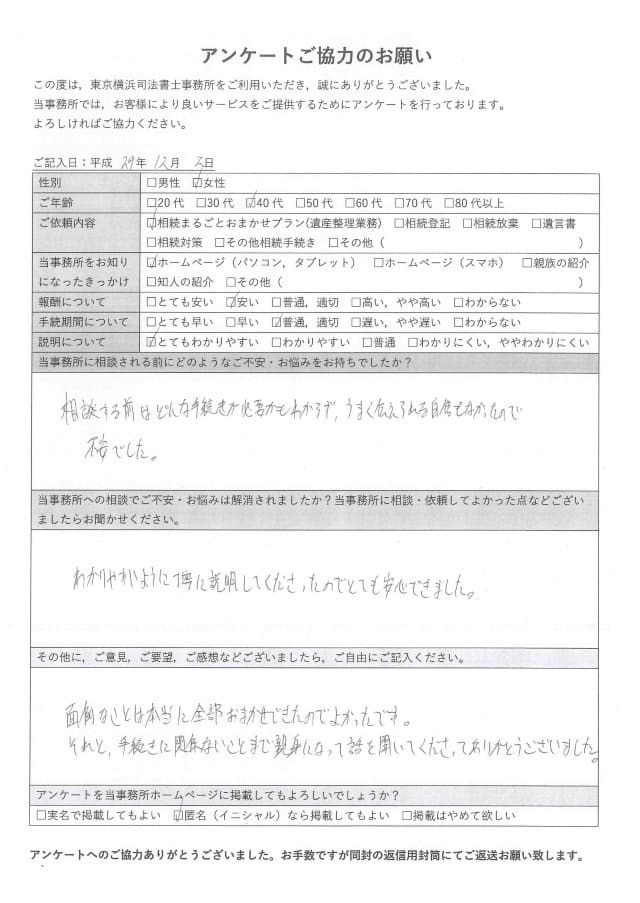 アンケートご協力のお願い
この度は，東京横浜司法書士事務所をご利用いただき，誠にありがとうございました。
当事務所では，お客様により良いサービスをご提供するためにアンケートを行っております。
よろしければご協力ください。
ご記入日：平成 29年 12月 2日
性別 □男性 ☑女性
ご年齢 □20代 □30代 ☑40代 □50代 □60代 □70代 □80代以上
ご依頼内容 ☑相続まるごとおまかせプラン(遺産整理業務) □相続登記 □相続放棄 □遺言書
□相続対策 □その他相続手続き □その他（ ）
当事務所をお知り ☑ホームページ（パソコン，タブレット） □ホームページ（スマホ） □親族の紹介
になったきっかけ □知人の紹介 □その他（ ）
報酬について □とても安い ☑安い □普通，適切 □高い，やや高い □わからない
手続期間について □とても早い □早い ☑普通，適切 □遅い，やや遅い □わからない
説明について ☑とてもわかりやすい □わかりやすい □普通 □わかりにくい，ややわかりにくい
当事務所に相談される前にどのようなご不安・お悩みをお持ちでしたか？
相談する前はどんな手続きが必要かもわからず，うまく伝えられる自信もなかったので
不安でした。
当事務所への相談でご不安・お悩みは解消されましたか？当事務所に相談・依頼してよかった点などござい
ましたらお聞かせください。
わかりやすいように丁寧に説明してくださったのでとても安心できました。
その他に，ご意見，ご要望，ご感想などございましたら，ご自由にご記入ください。
面倒なことは本当に全部おまかせできたのでよかったです。
それと，手続きに関係ないことまで親身になって話を聞いてくださってありがとうございました。
アンケートを当事務所ホームページに掲載してもよろしいでしょうか？
□実名で掲載してもよい ☑匿名（イニシャル）なら掲載してもよい □掲載はやめて欲しい
アンケートへのご協力ありがとうございました。お手数ですが同封の返信用封筒にてご返送お願い致します。